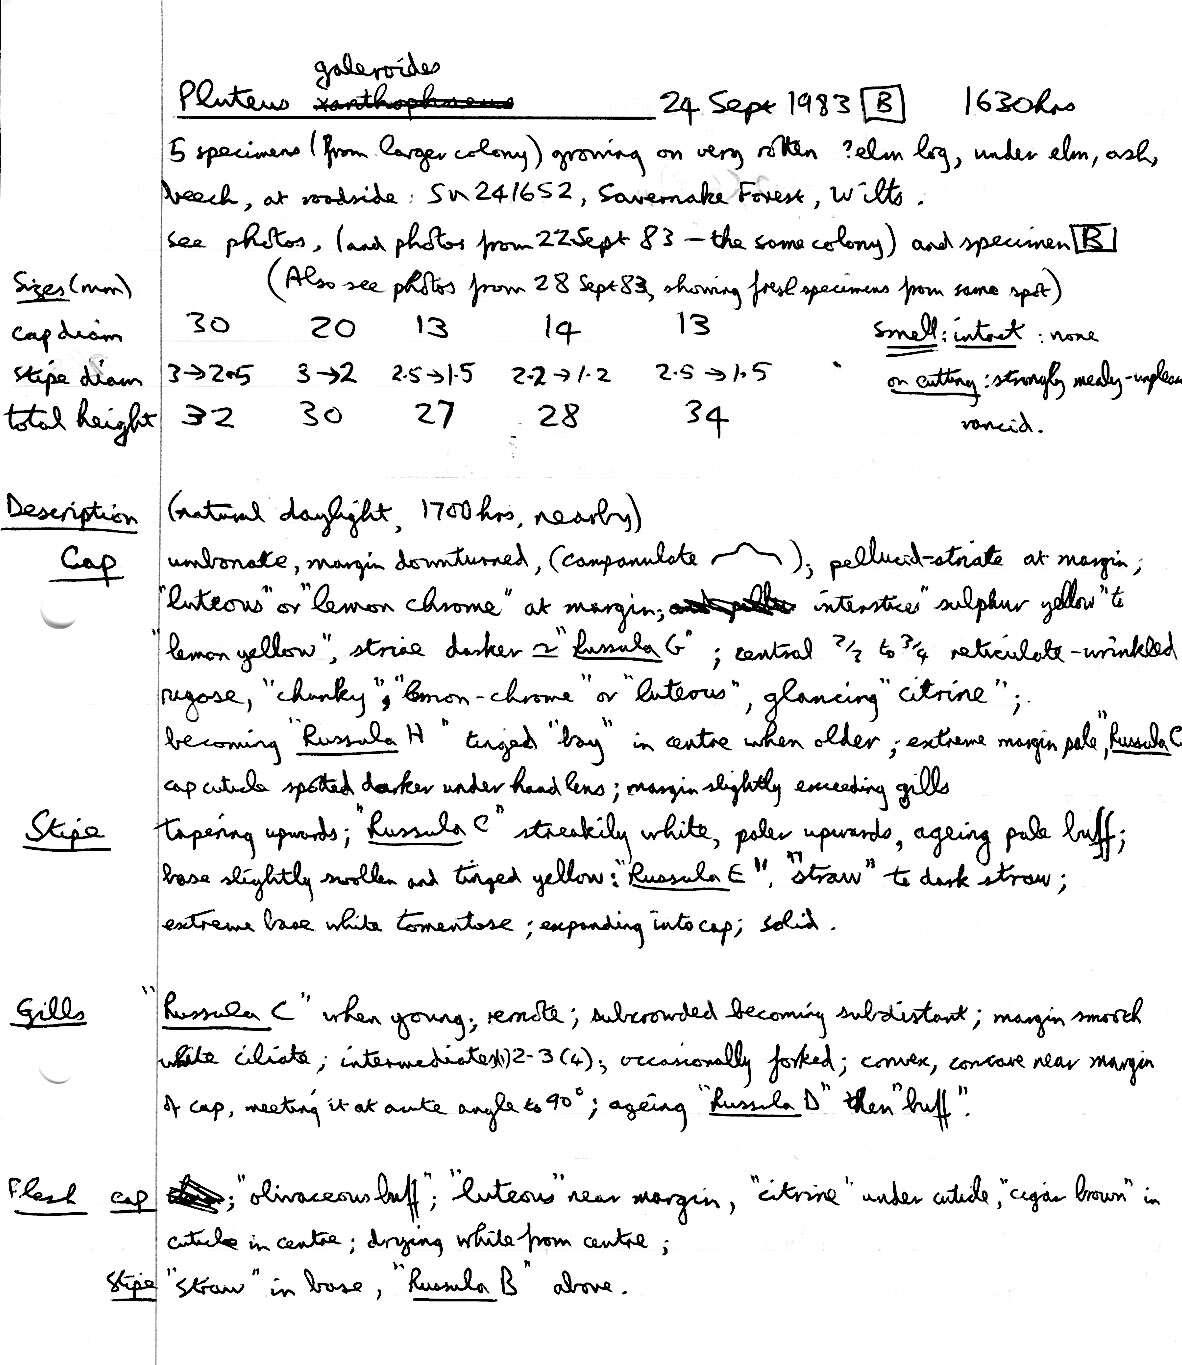 galeroides
Pluteus xanthophaeus 24 Sept 1983 B 1630hrs
5 specimens (from larger colony) growing on very rotten ?elm log, under elm, ash,
beech, at roadside: SU 241652, Savernake Forest, Wilts.
see photos, (and photos from 22 Sept 83 – the same colony) and specimen B
Sizes (mm) (Also see photos from 28 Sept 83, showing fresh specimens from same spot)
cap diam 30 20 13 14 13 smell: intact: none
stipe diam 3→2.5 3→2 2.5→1.5 2.2→1.2 2.5→1.5 on cutting: strongly mealy-unpleas
total height 32 30 27 28 34 rancid.
Description (natural daylight, 1700hrs, nearby)
Cap umbonate, margin downturned, (campanulate ); pellucid-striate at margin;
"luteous" or "lemon chrome" at margin; interstices "sulphur yellow" to
"lemon yellow", striae darker ≃ "Russula G"; central 2/3 to 3/4 reticulate-wrinkled
rugose, "chunky", "lemon-chrome" or "luteous", glancing "citrine";
becoming "Russula H" tinged "bay" in centre when older; extreme margin pale, "Russula C
cap cuticle spotted darker under hand lens; margin slightly exceeding gills
Stipe tapering upwards; "Russula C" streakily white, paler upwards, ageing pale buff;
base slightly swollen and tinged yellow: "Russula E", "straw" to dark straw;
extreme base white tomentose; expanding into cap; solid.
Gills "Russula C" when young; remote; subcrowded becoming subdistant; margin smooth
white ciliate; intermediates (1) 2-3 (4); occasionally forked; convex, concave near margin
of cap, meeting it at acute angle to 90°; ageing "Russula D" then "buff".
Flesh cap ; "olivaceous buff"; "luteous" near margin, "citrine" under cuticle, "cigar brown" in
cuticle in centre; drying white from centre;
Stipe "straw" in base, "Russula B" above.